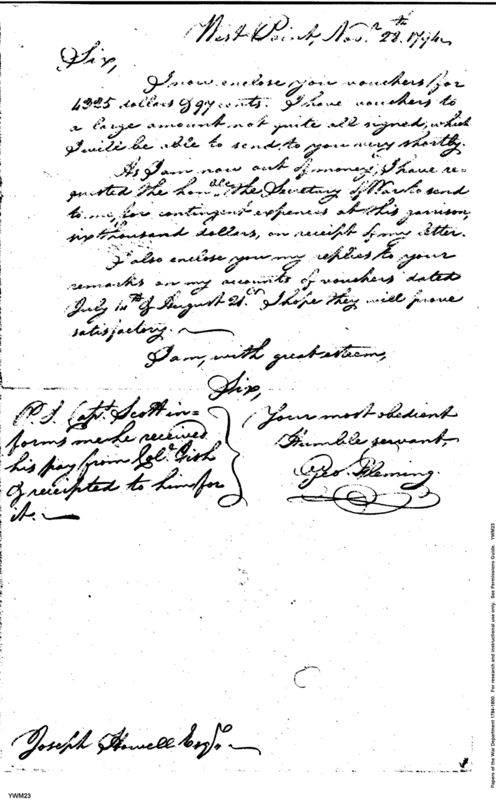 West Point, Nov.r 28.th 1794
Sir,
I now enclose you vouchers for
4325 dollars & 97 cents. I have vouchers to
a large amount not quite all signed, which
I will be able to send to you very shortly.
As I am now out of money, I have re=
quested the hon.ble the Secretary of War to send
to me, for contingent expences at this garrison,
six thousand dollars, on receipt of my letter.
I also enclose you my replies to your
remarks on my accounts of vouchers dated
July 14th & August 21. I hope they will prove
satisfactory.
I am, with great esteem,
Sir,
Your most obedient
Humble servant,
Geo. Fleming.
P.S. Capt. Scott in=
forms me he received
his pay from Col.o Fish
& receipted to him for
it.
Joseph Howell Esqr.
Papers of the War Department 1784-1800. For research and instructional use only. See Permissions Guide. YWM23
YWM23